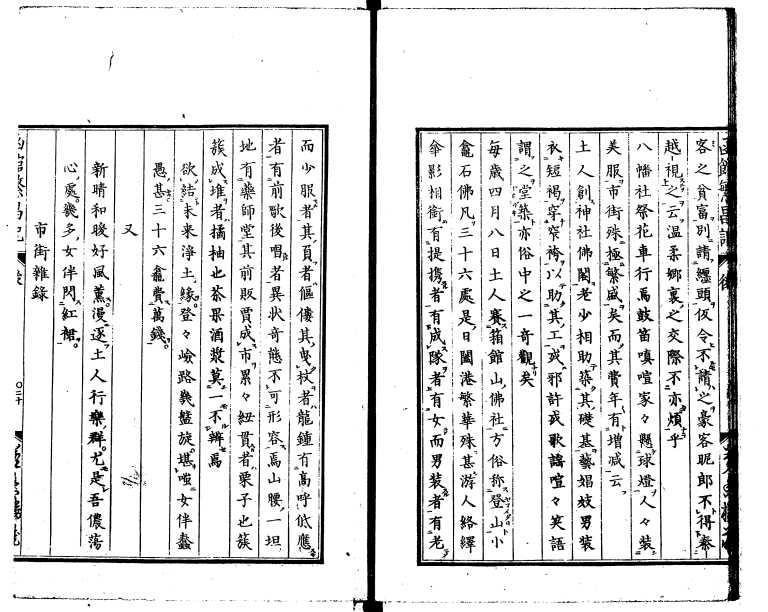 客之貧富別請纒頭仮令不薦之豪客昵郎不得秦
越視之云温柔鄉裏之交際不亦煩乎
八幡社祭花車行焉鼓笛嗔喧家々懸球燈人々裝
美服市街殊極繁盛矣而其費年有增減云
土人創神社佛閣老少相助築其礎基藝娼妓男裝
衣短褐穿窄袴以助其工或邪許或歌謠喧々笑語
謂之堂築亦俗中之一奇觀矣
每歲四月八日土人賽箱館山佛社方俗称登山小
龕石佛凡三十六處是日闔港繁華殊甚游人絡繹
傘影相銜有提攜者有成隊者有女而男裝者有老
而少服者其頁者傴僂其曳杖者龍鍾有高呼低應
者有前歌後唱者異狀奇態不可形容焉山腰一坦
地有藥師堂其前販賈成市累々紐貫者栗子也簇
簇成堆者橘柚也茶果酒漿莫一不辨焉
欲結未來淨土緣登々嶮路幾盤旋堪嗤女伴蠢
愚甚三十六龕費萬錢
又
新晴和暖好風薰漫逐土人行樂群尤是吾儂蕩
心處幾多女伴閃紅裙
市街雜錄